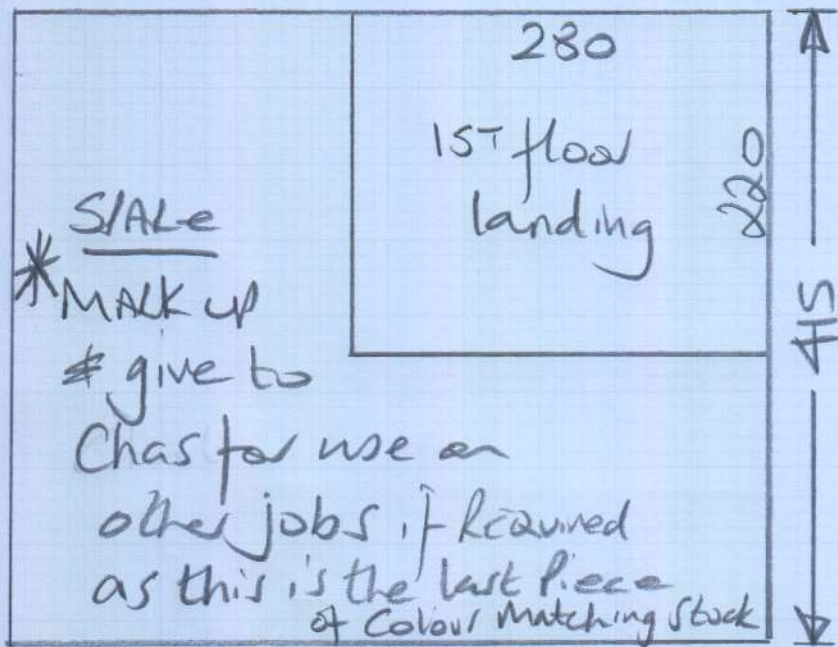 280
1ST floor
landing
220
415
SIALe
* MARK up
& give to
Chas for use on
other jobs if Required
as this is the last Piece
of Colour Matching Stock